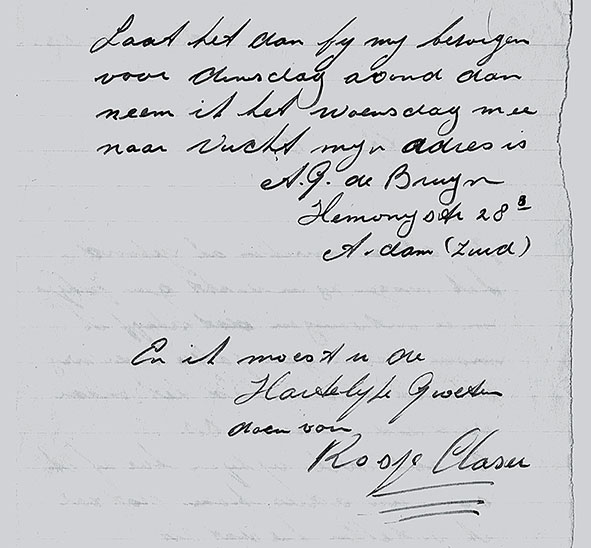 Laat het dan by my bezorgen
voor dinsdag avond dan
neem ik het woensdag mee
naar Vucht myn adres is
A.G. de Bruyn
Hemonystr 28 3
A.dam (Zuid)
En ik moest u de
Hartelyke Groeten
doen van
Roosje Claser